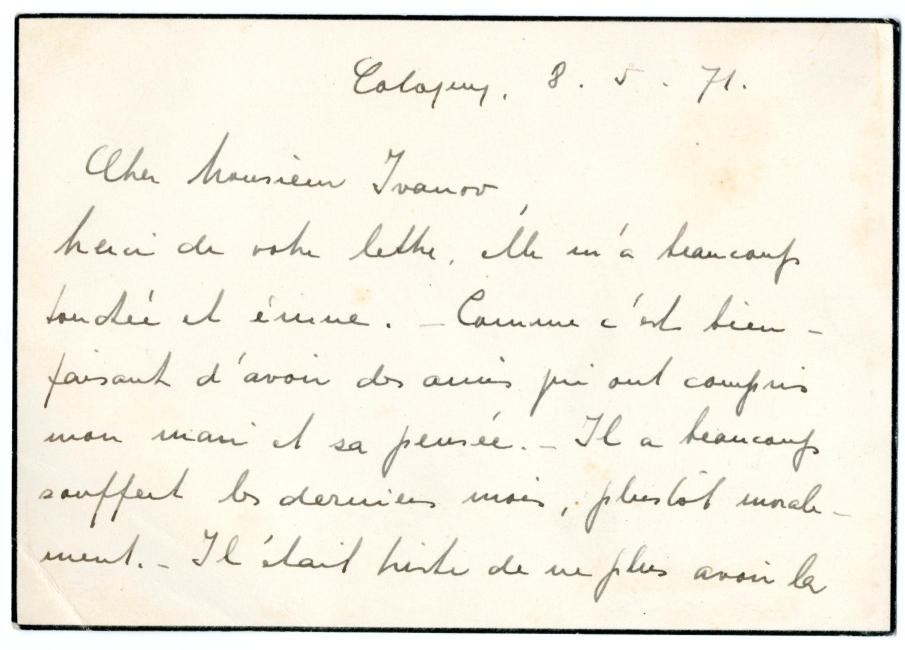 Cologny, 8. 5. 71.
Cher Monsieur Ivanov,
Merci de votre lettre, elle m'a beaucoup
touchée et émue. – Comme c'est bien–
faisant d'avoir des amis qui ont compris
mon mari et sa pensée. – Il a beaucoup
souffert les derniers mois, plustôt morale–
ment. – Il était triste de ne plus avoir la